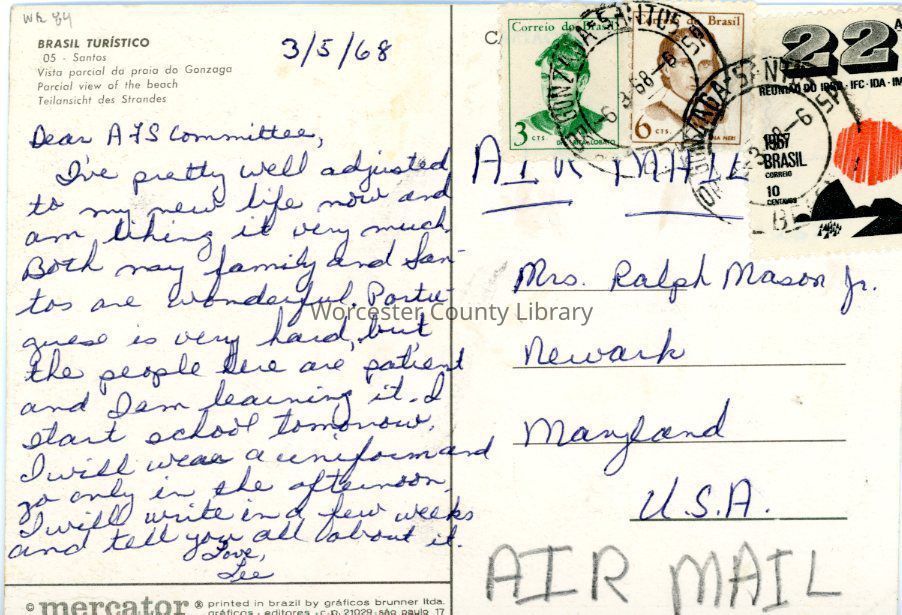 WR 84
BRASIL TURÍSTICO
05 - Santos
Vista parcial da praia do Gonzaga
Parcial view of the beach
Teilansicht des Strandes
3/5/68
Dear AFS Committee,
I've pretty well adjusted
to my new life now and
am liking it very much.
Both may family and San-
tos are wonderful. Portu-
guese is very hard, but
the people here are patient
and I am learning it. I
start school tomorrow.
I will wear a uniform and
go only in the afternoon.
I will write in a few weeks
and tell you all about it.
Love,
Lee
mercator ® printed in brazil by gráficos brunner ltda.
gráficos - editores - c.p. 21029 - são paulo 17
Correio do Brasil
3 CTS.
Correio do Brasil
6 CTS.
ANA NERI
22
REUNIÃO DO BIRD · IFC · IDA ·
1967
BRASIL
CORREIO
10
CENTAVOS
GONZAGA SANTOS SP
AIR MAIL
Mrs. Ralph Mason Jr.
Newark
Maryland
U.S.A.
AIR MAIL
Worcester County Library